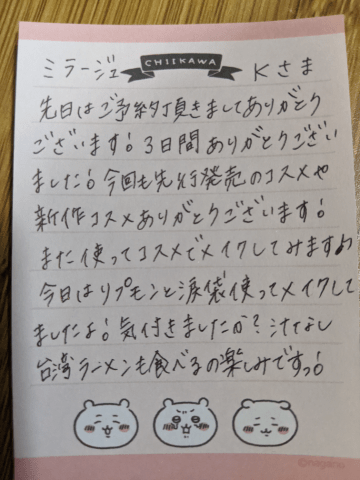 ミラージュ CHIIKAWA Kさま
先日はご予約頂きましてありがとう
ございます！3日間ありがとうござい
ました！今回も先行発売のコスメや
新作コスメありがとうございます！
また使ってコスメでメイクしてみます♪
今日はリプモンと涙袋使ってメイクして
ましたよ！気付きましたか？汁なし
台湾ラーメンも食べるの楽しみですっ！
©nagano